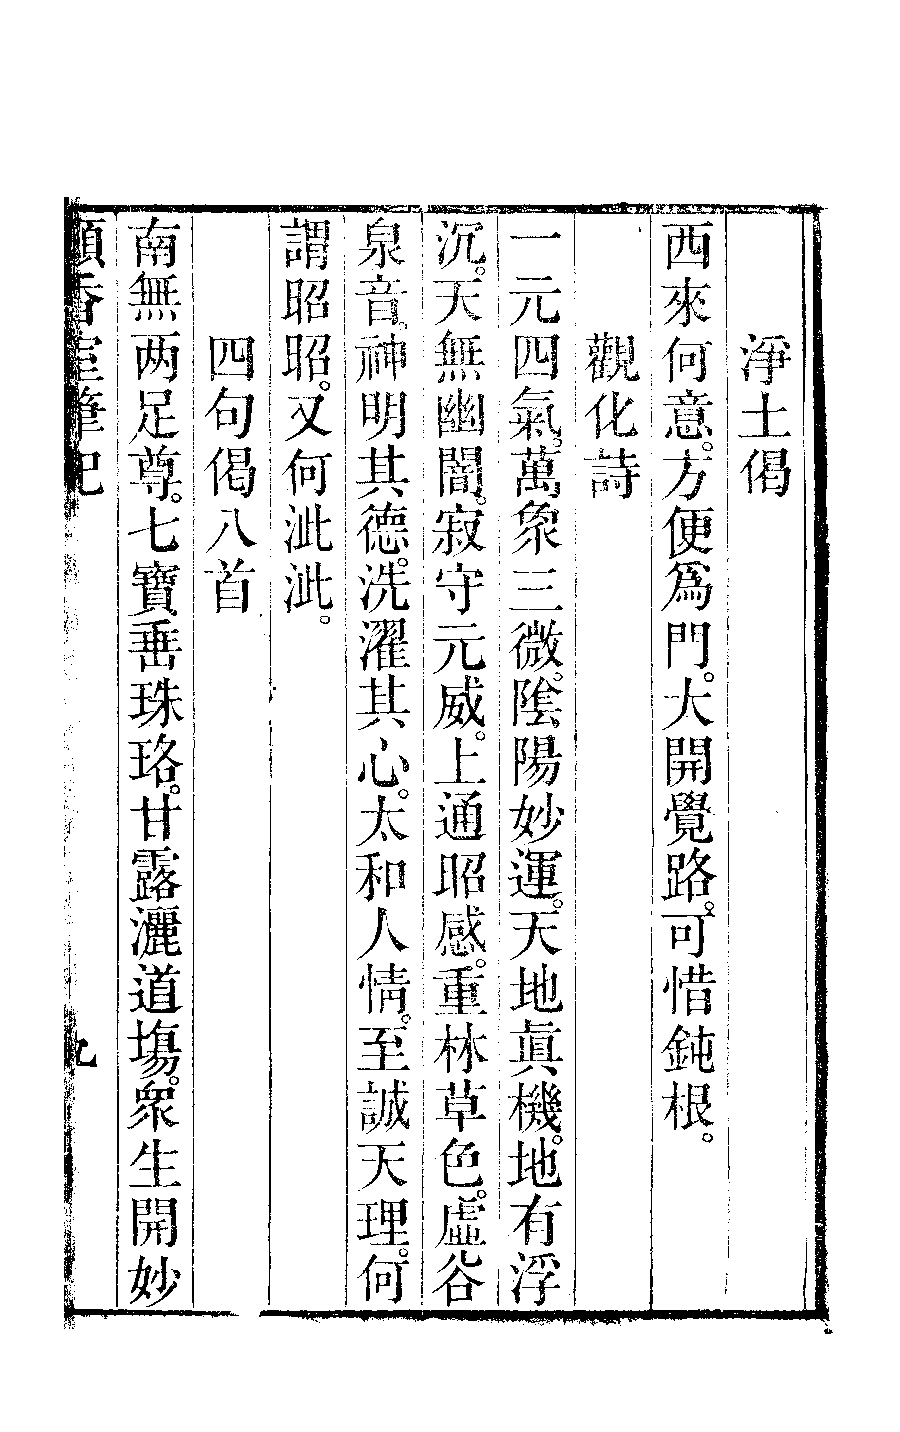 淨土偈
西來何意。方便爲門。大開覺路。可惜鈍根。
觀化詩
一元四氣。萬象三微。陰陽妙運。天地眞機。地有浮
沉。天無幽闇。寂守元威。上通昭感。重林草色。虛谷
泉音。神明其德。洗濯其心。太和人情。至誠天理。何
謂昭昭。又何泚泚。
四句偈八首
南無两足尊。七寶垂珠珞。甘露灑道塲。衆生開妙
香室筆記
九